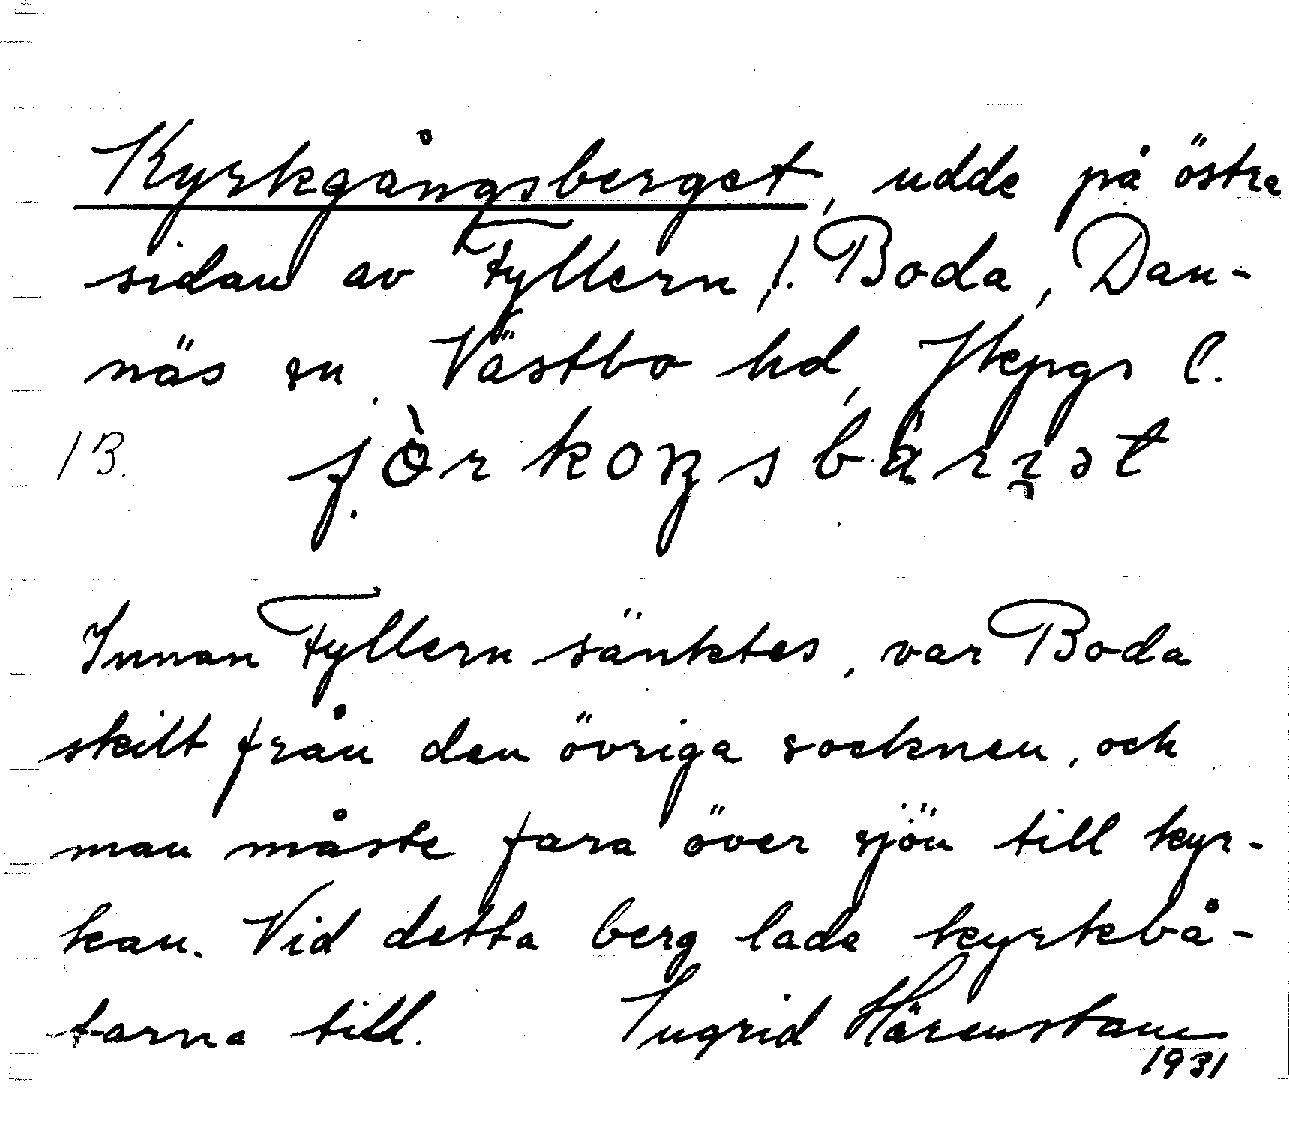 Kyrkgångsberget, udde på östra
sidan av Fyllern f. Boda, Dan-
näs sn. Västbo hd, Jkpgs l.
1B. ɟɵ̀rkoŋsbärɜət
Innan Fyllern sänktes, var Boda
skilt från den övriga socknen, och
man måste fara över sjön till kyr-
kan. Vid detta berg lade kyrkbå-
tarna till. Ingrid Härenstam
1931